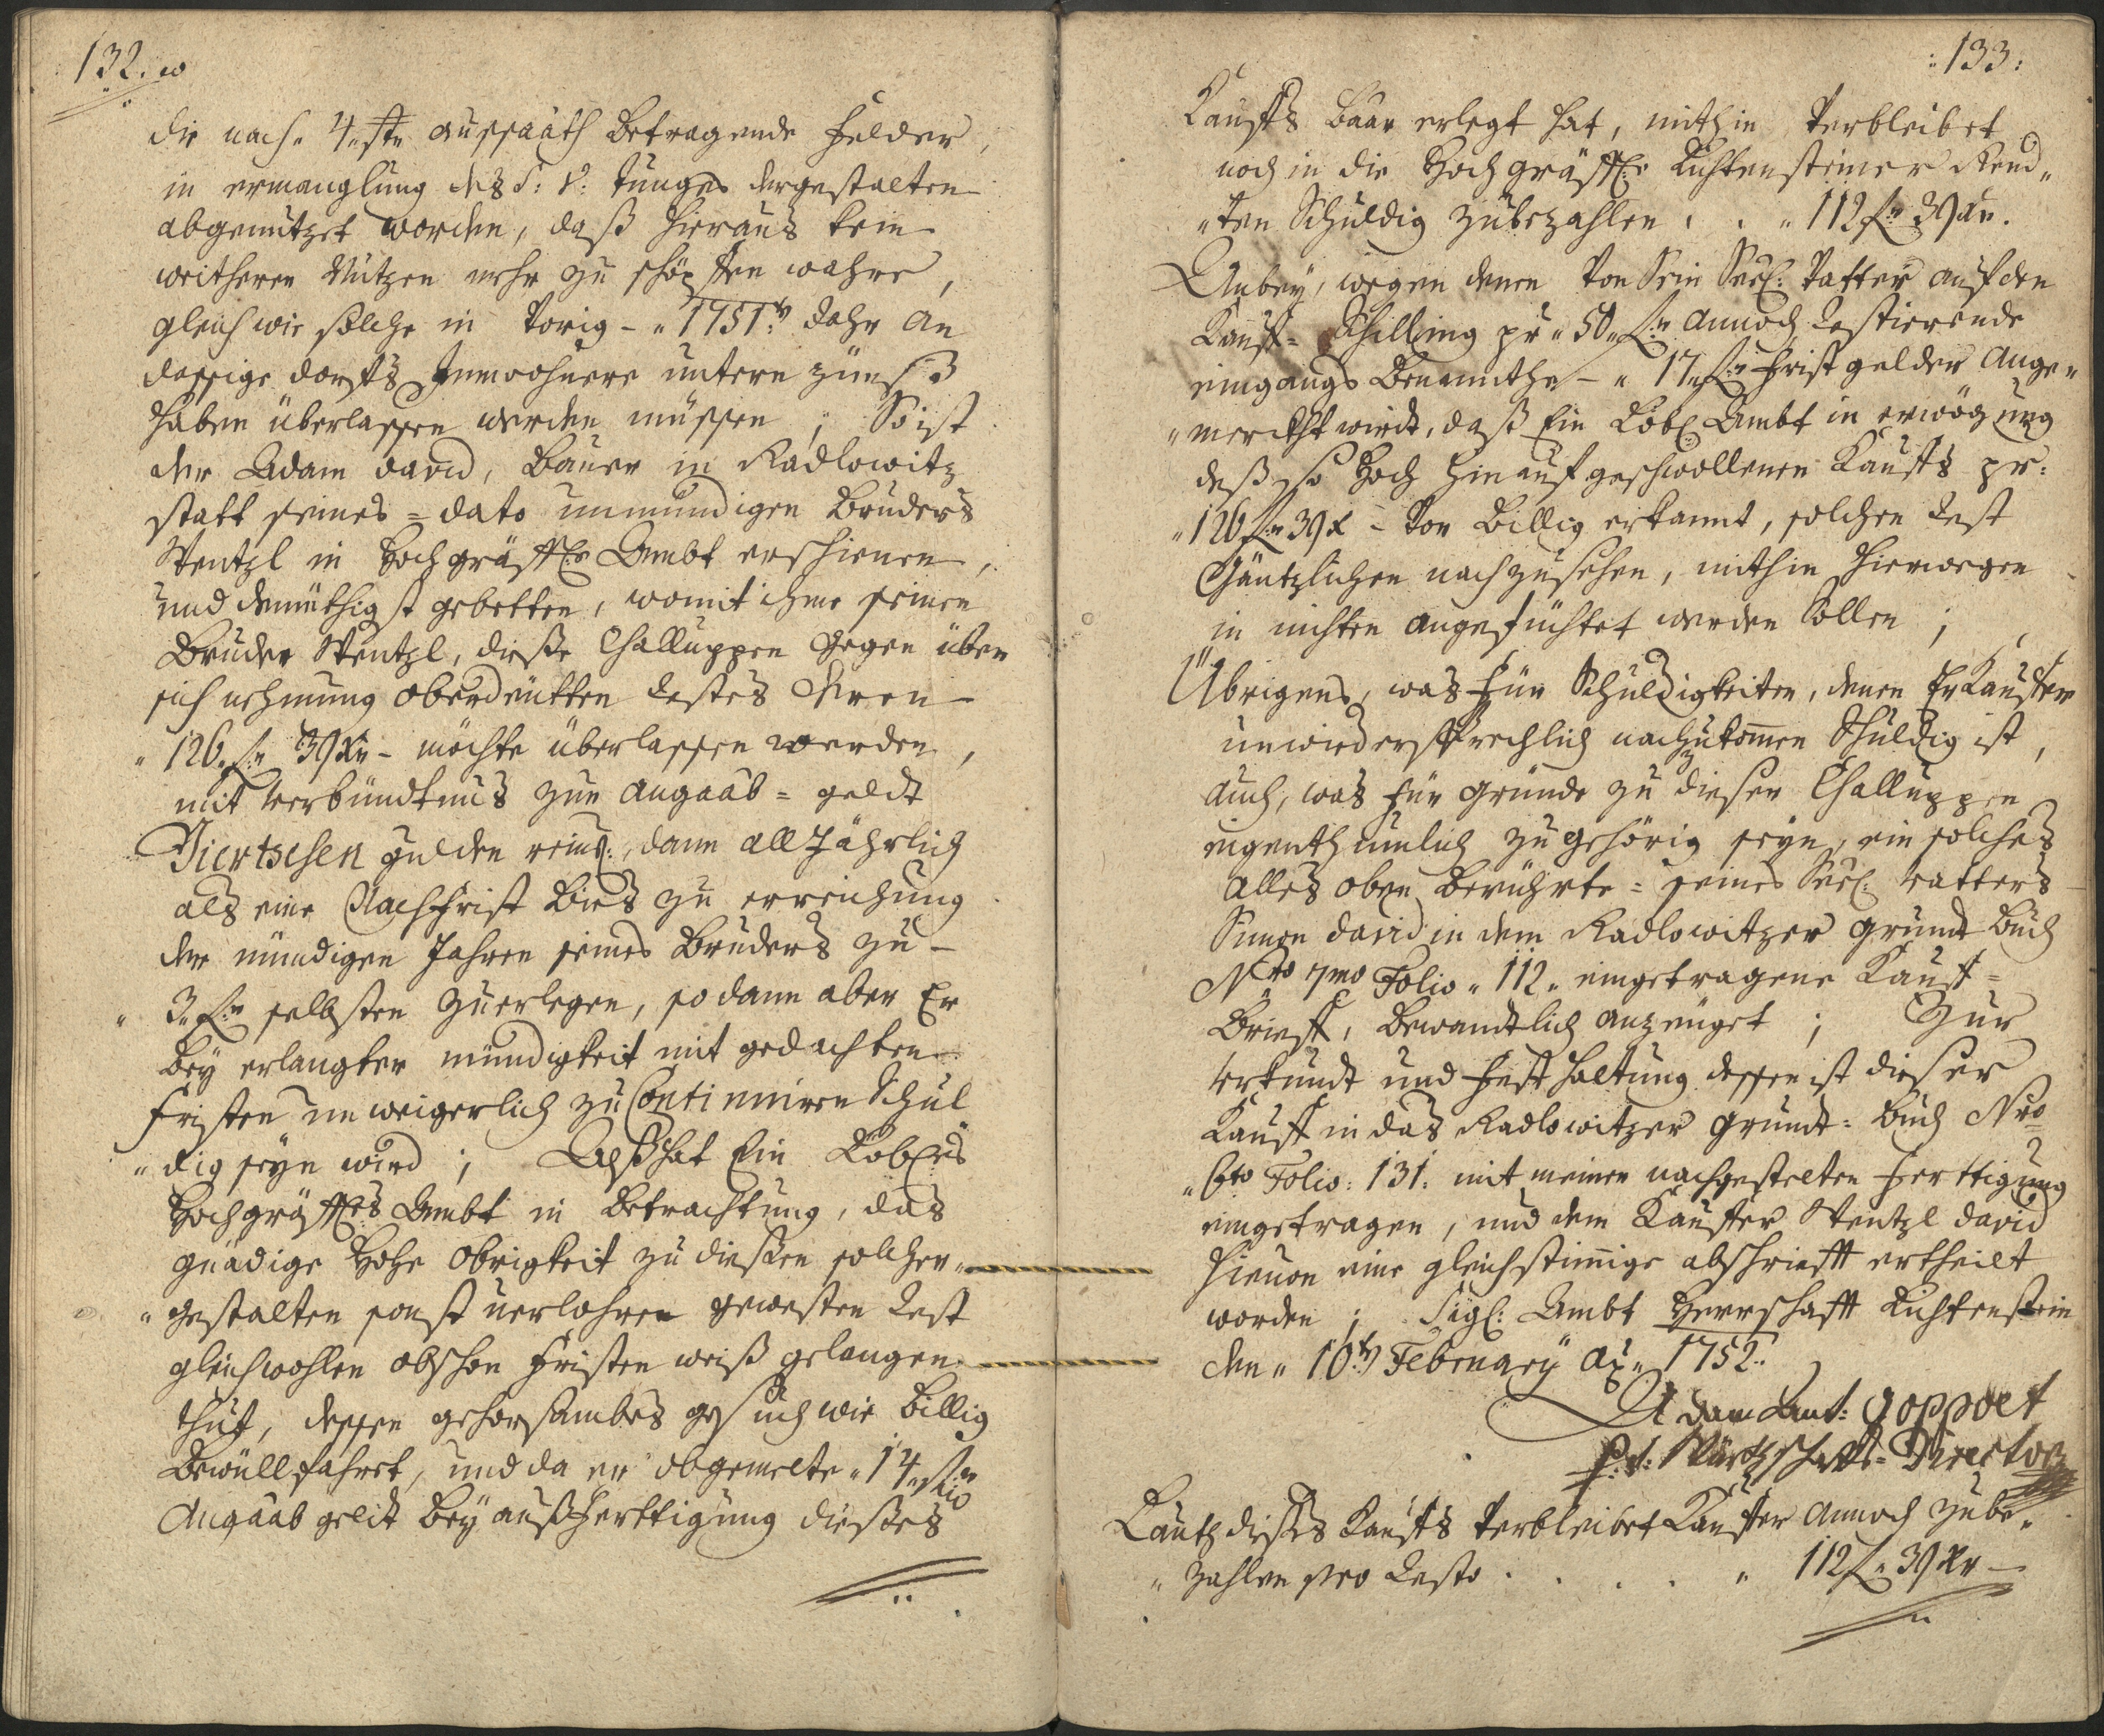 132.
die nach 4. str: aussaath betragende Felder,
in ermanglung des S: V: tunges dergestalten
abgenutzet worden, daß hieraus kein
weitheren Nutzen mehr zu schöpffen wahre,
gleich wie solche in Vorig- 1751.t Jahr an
dassige dorfs Innwohnere untern zünß
haben überlassen werden müssen; So ist
der Adam david, Bauer in Radlowitz
statt seines = dato unmündigen Bruders
Wentzl in Hochgräffl: Ambt erschienen,
und demüthigst gebetten, womit ihme seinen
Bruder Wentzl, dieße Challuppen gegen über
sich nehmung oberdeutten Restes deren
126. fr 39 Xr - möchte überlassen werden,
mit verbündtnus zur angaab = geldt
Viertzehen gulden rein:, dann all Jährlich
als eine Nachfrist bies zu erreichung
der mündigen Jahren seines Bruders zu-
3. fr selbsten zuerlegen, so dann aber Er
bey erlangter mündigkeit mit gedachten
fristen unweigerlich zu Continuiren Schul
dig seyn wird; Alß hat Ein Löbl:es
Hochgräffl:es Ambt in betrachtung, das
gnädige Hohe Obrigkeit zu dießen solcher-
gestalten sonst verlohren geweßten Rest
gleichwohlen obschon fristen weiß gelangen
thut, dessen gehorsambes gesuch wie billig
Bewüllfahret, und da er obgemelte 14 fr
Angaab geldt bey außferttigung dießes
:133:
Kauffs baar erlegt hat, mithin Verbleibet
noch in die Hochgräffl: Lichtensteiner Rend-
ten Schuldig zubezahlen . . 112 fr 39 Xr.
Anbey, wegen denen Von Sein Seel: Vatter auf den
Kauff = Schilling pr 50 fr annoch Restierende
eingangs benannthe - 17 fr Fristgelder ange-
merckht wird, daß Ein Löbl: Ambt in erwögung
deß so Hoch hinauf geschwollenen Kauffs pr:
126 fr 39 X - Vor billig erkannt, solchen Rest
Gäntzlichen nachzusehen, mithin hierwegen
in nichten angefüchtet werden sollen;
Übrigens, was für Schuldigkeiten, denen Er Kauffer
unwidersprechlich nachzukommen Schuldig ist,
auch, was für gründe zu dieser Challuppen
eigenthumlich zugehörig seyn, ein solches
alles oben berührte = seines Seel: vatters
Simon david in dem Radlowitzer grundt buch
Nro 7mo Folio 112. eingetragene Kauff =
Brieff, bewandtlich anzeuget; Zur
Urkundt und Festhaltung dessen ist dieser
Kauff in das Radlowitzer grundt = buch Nro
6to Folio: 131: mit meiner nachgestelten Ferttigung
eingetragen, und dem Kauffer Wentzl david
hievon eine gleichstimige abschrifft ertheilt
worden; Sigl: Ambt Herrschafft Lichtenstein
den 10.t February Ao 1752.
Adam Ant: Goppolt
p:t: Würtschaffts = Director
Lauth dißes Kauffs Verbleibet Kauffer annoch zube-
zahlen pro Resto . . . . 112 fr 39 Xr -